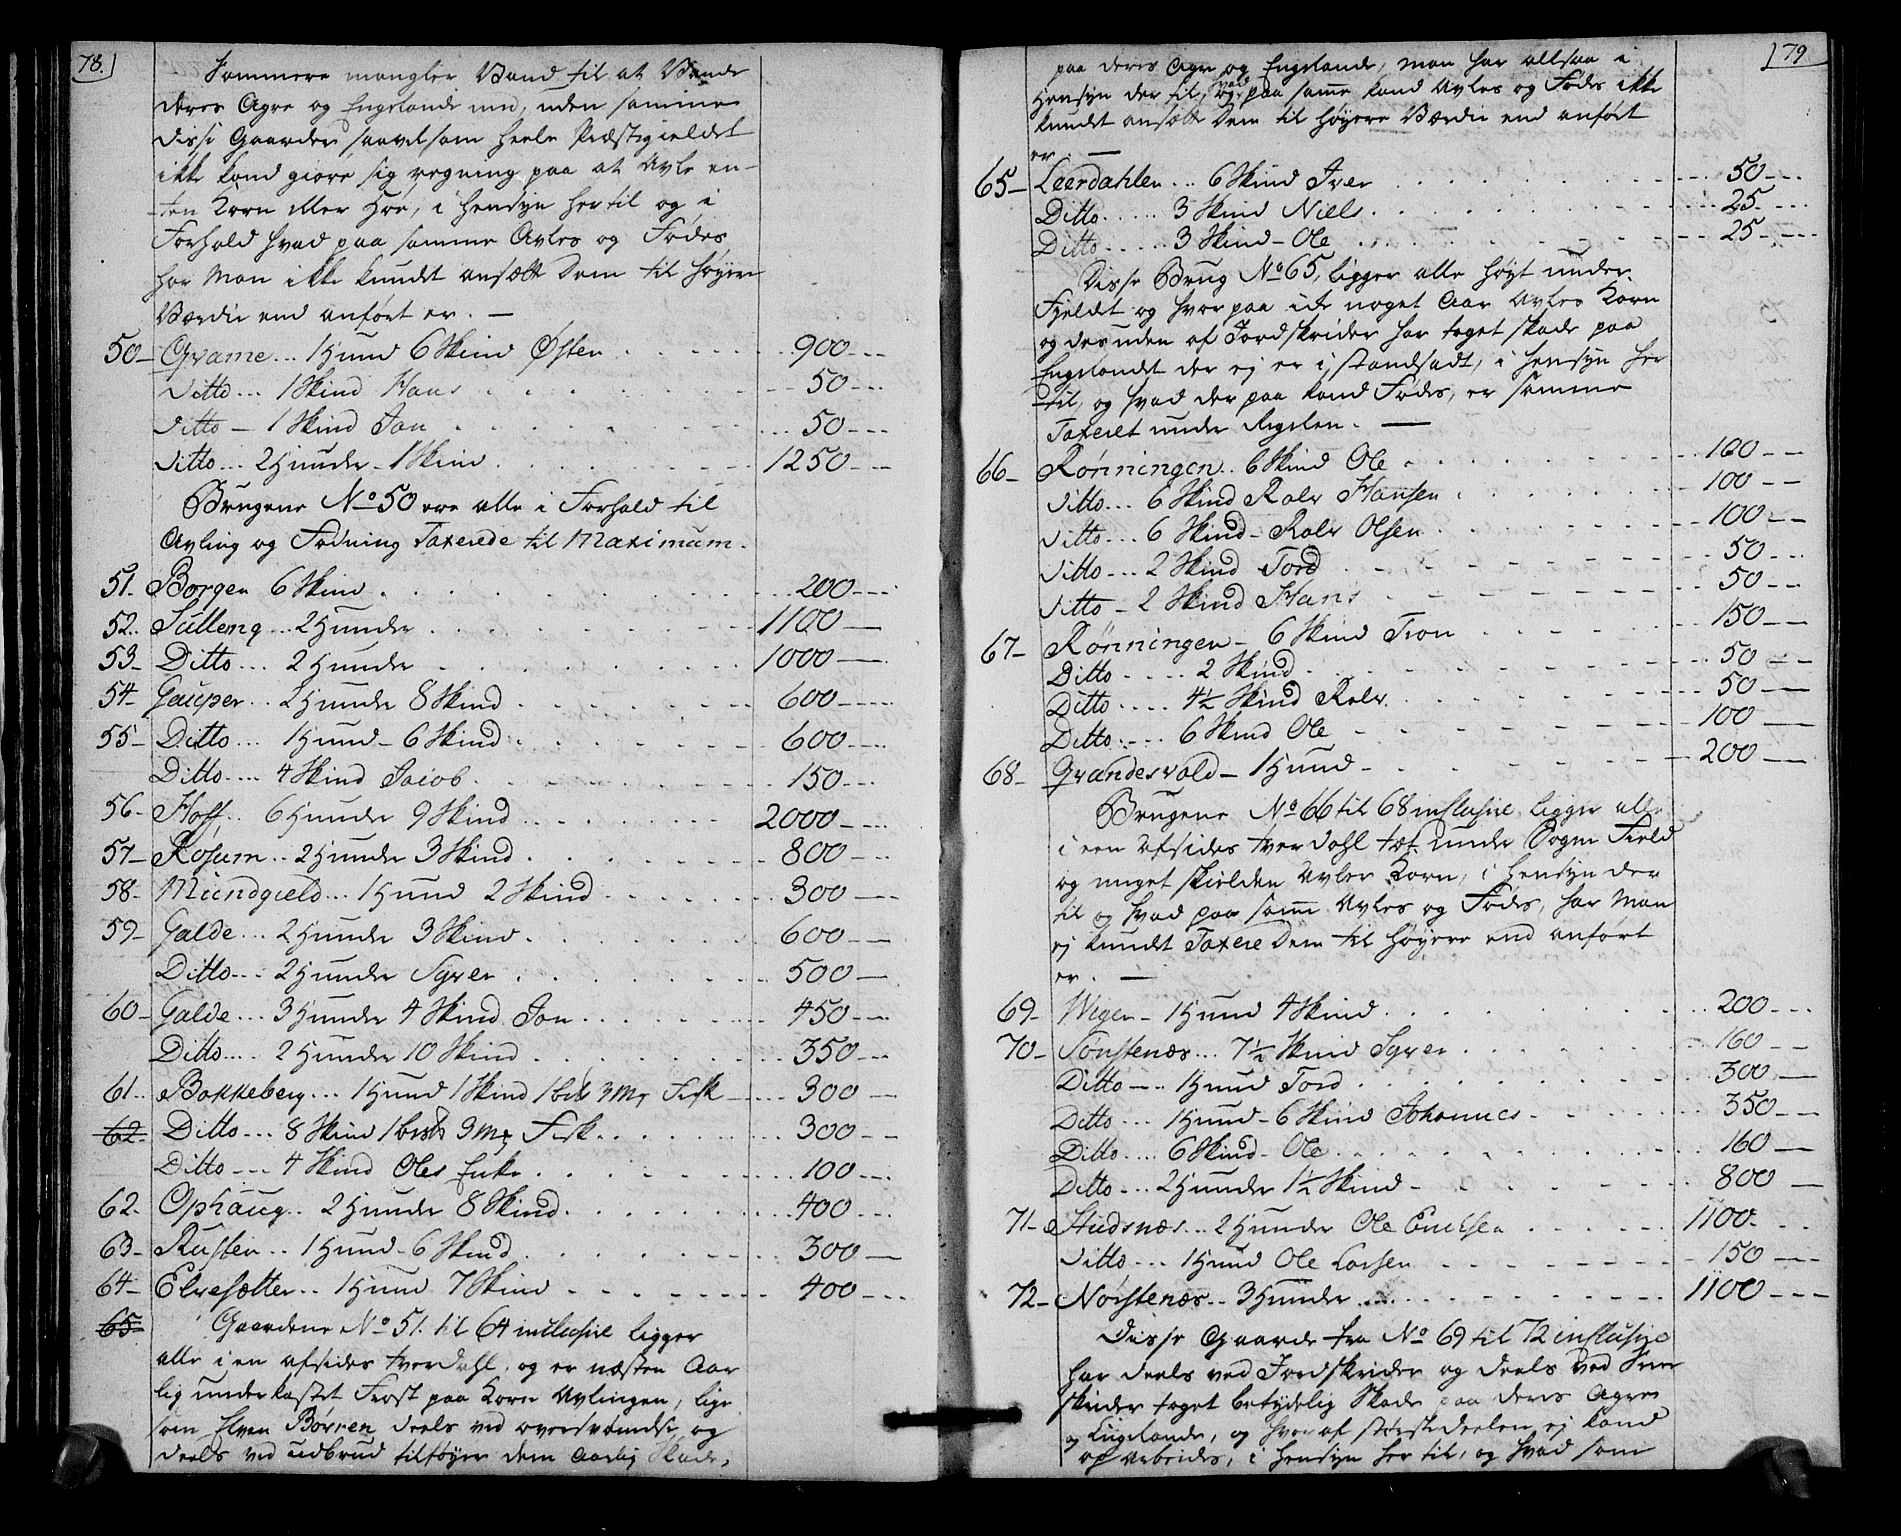 78.
Sommere mangler Vand til at Vande
deres Agre og Engelande med, uden samme
disse Gaarder saavelsom heele Præstegieldet
ikke kand giøre sig regning paa at Avle en-
ten Korn eller Høe, i Hensyn hertil og i
Forhold hvad paa samme Avles og Fødes
har man ikke kundet ansætte dem til høyere
Værdie end anført er. —
50 — Qvame... 1 Hund 6 Skind Østen 900
Ditto... 1 Skind Hans 50
Ditto — 1 Skind Jon 50
Ditto... 2 Hunder — 1 Skind 1250
Brugene No 50 ere alle i Forhold til
Avling og Fødning Taxerede til Maximum.
51. Borgen 6 Skind 200
52. Sulleng... 2 Hunder 1100
53 — Ditto... 2 Hunder 1000
54 — Gauper... 2 Hunder 8 Skind 600
55 — Ditto... 1 Hund — 6 Skind 600
Ditto.... 4 Skind Jacob 150
56 — Hoff... 6 Hunder 9 Skind 2000
57 — Kosum.. 2 Hunder 3 Skind 800
58 — Mundgield... 1 Hund 2 Skind 300
59 — Galde... 2 Hunder 3 Skind 600
Ditto... 2 Hunder Syver 500
60 — Galde... 3 Hunder 4 Skind Jon 450
Ditto.... 2 Hunder 10 Skind 350
61.. Bakkeberg... 1 Hund 1 Skind 1 3 Mrk Fisk 300
62. Ditto... 8 Skind 1 3 Mrk Fisk 300
Ditto... 4 Skind Oles Enke 100
62 — Ophaug.. 2 Hunder 8 Skind 400
63 — Rusten.. 1 Hund — 6 Skind 300
64 — Elvesætter.. 1 Hund 7 Skind 400
65 Gaardene No 51. til 64 inclusive ligger
alle i en afsides tverdahl, og er næsten Aar
lig underkastet Frost paa Korn Avlingen, lige
som Elven Børren deels ved oversvømdse og
deels ved udbrud tilføyer dem Aarlig Skade,
79
paa deres Agre og Engelande, man har altsaa i
Hensyn der til, og hvad paa samme kand Avles og Fødes ikke
kundet ansætte dem til høyere Værdie end anført
er. —
65 — Leerdahlen... 6 Skind Iver 50
Ditto...... 3 Skind Niels 25
Ditto..... 3 Skind — Ole 25
Disse Brug No 65, ligger alle høyt under
Fjeldet og hvorpaa icke noget Aar Avles Korn
og desuden af Jordskrider har taget skade paa
Engelandet der ej er i standsadt, i Hensyn her
til, og hvad der paa kand Fødes, er samme
Taxeret under Regelen. —
66 — Rønningen.. 6 Skind Ole 100
Ditto... 6 Skind Rolv Hansen 100
Ditto... 6 Skind — Rolv Olsen 100
Ditto... 2 Skind Tord 50
Ditto — 2 Skind Hans 50
67 — Rønningen — 6 Skind Tron 150
Ditto.... 2 Skind 50
Ditto.... 4½ Skind Rolv 50
Ditto.... 6 Skind Ole 100
68 — Grandesvold — 1 Hund 200
Brugene No 66 til 68 inclusive ligger alle
i een afsides tver dahl tæt under Sogne Field
og meget skielden Avler Korn, i Hensyn der
til og hvad paa samme Avles og Fødes, har man
ej kundet Taxere dem til høyere end anført
er. —
69 — Wigen — 1 Hund 4 Skind 200
70 — Sønstenæs... 7½ Skind Syver 160
Ditto.... 1 Hund Tord 300
Ditto... 1 Hund — 6 Skind Johannes 350
Ditto.... 6 Skind — Ole 160
Ditto... 2 Hunder 1½ Skind 800
71 — Studsnæs... 2 Hunder Ole 1100
Ditto... 1 Hund Ole Larsen 150
72 — Norstenæs.. 3 Hunder 1100
Disse Gaarde fra No 69 til 72 inclusive
har deels ved Jordskrider og deels ved Snee
skrider taget betydelig Skade paa deres Agre
og Engelande, og hvor af størstedeelen ej kand
op arbeides, i Hensyn her til, og hvad som